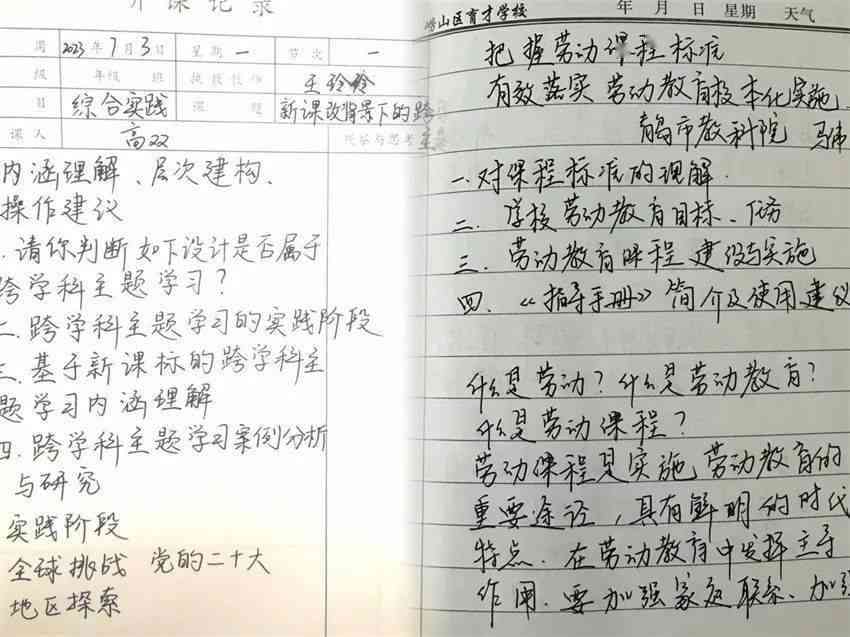 听课记录
周 2023年7月3日 星期 一 节次 一
级 年级 班 执教教师 王玲玲
目 综合实践 课题 新课改背景下的跨
课人 高双
内涵理解、层次建构、
操作建议
.请你判断如下设计是否属于
跨学科主题学习?
二.跨学科主题学习的实践阶段
三.基于新课标的跨学科主
题学习内涵理解
四.跨学科主题学习案例分析
与研究
实践阶段
全球挑战 党的二十大
地区探索
崂山区育才学校 年 月 日 星期 天气
把握劳动课程标准
有效落实劳动教育校本化实施
青岛市教科院 马伟
一.对课程标准的理解.
二.学校劳动教育目标、任务
三.劳动教育课程建设与实施
四.《指导手册》简介及使用建议
什么是劳动?什么是劳动教育?
什么是劳动课程?
劳动课程是实施劳动教育的
重要途径,具有鲜明的时代
特点.在劳动教育中发挥主导
作用.要加强家庭联系、加强